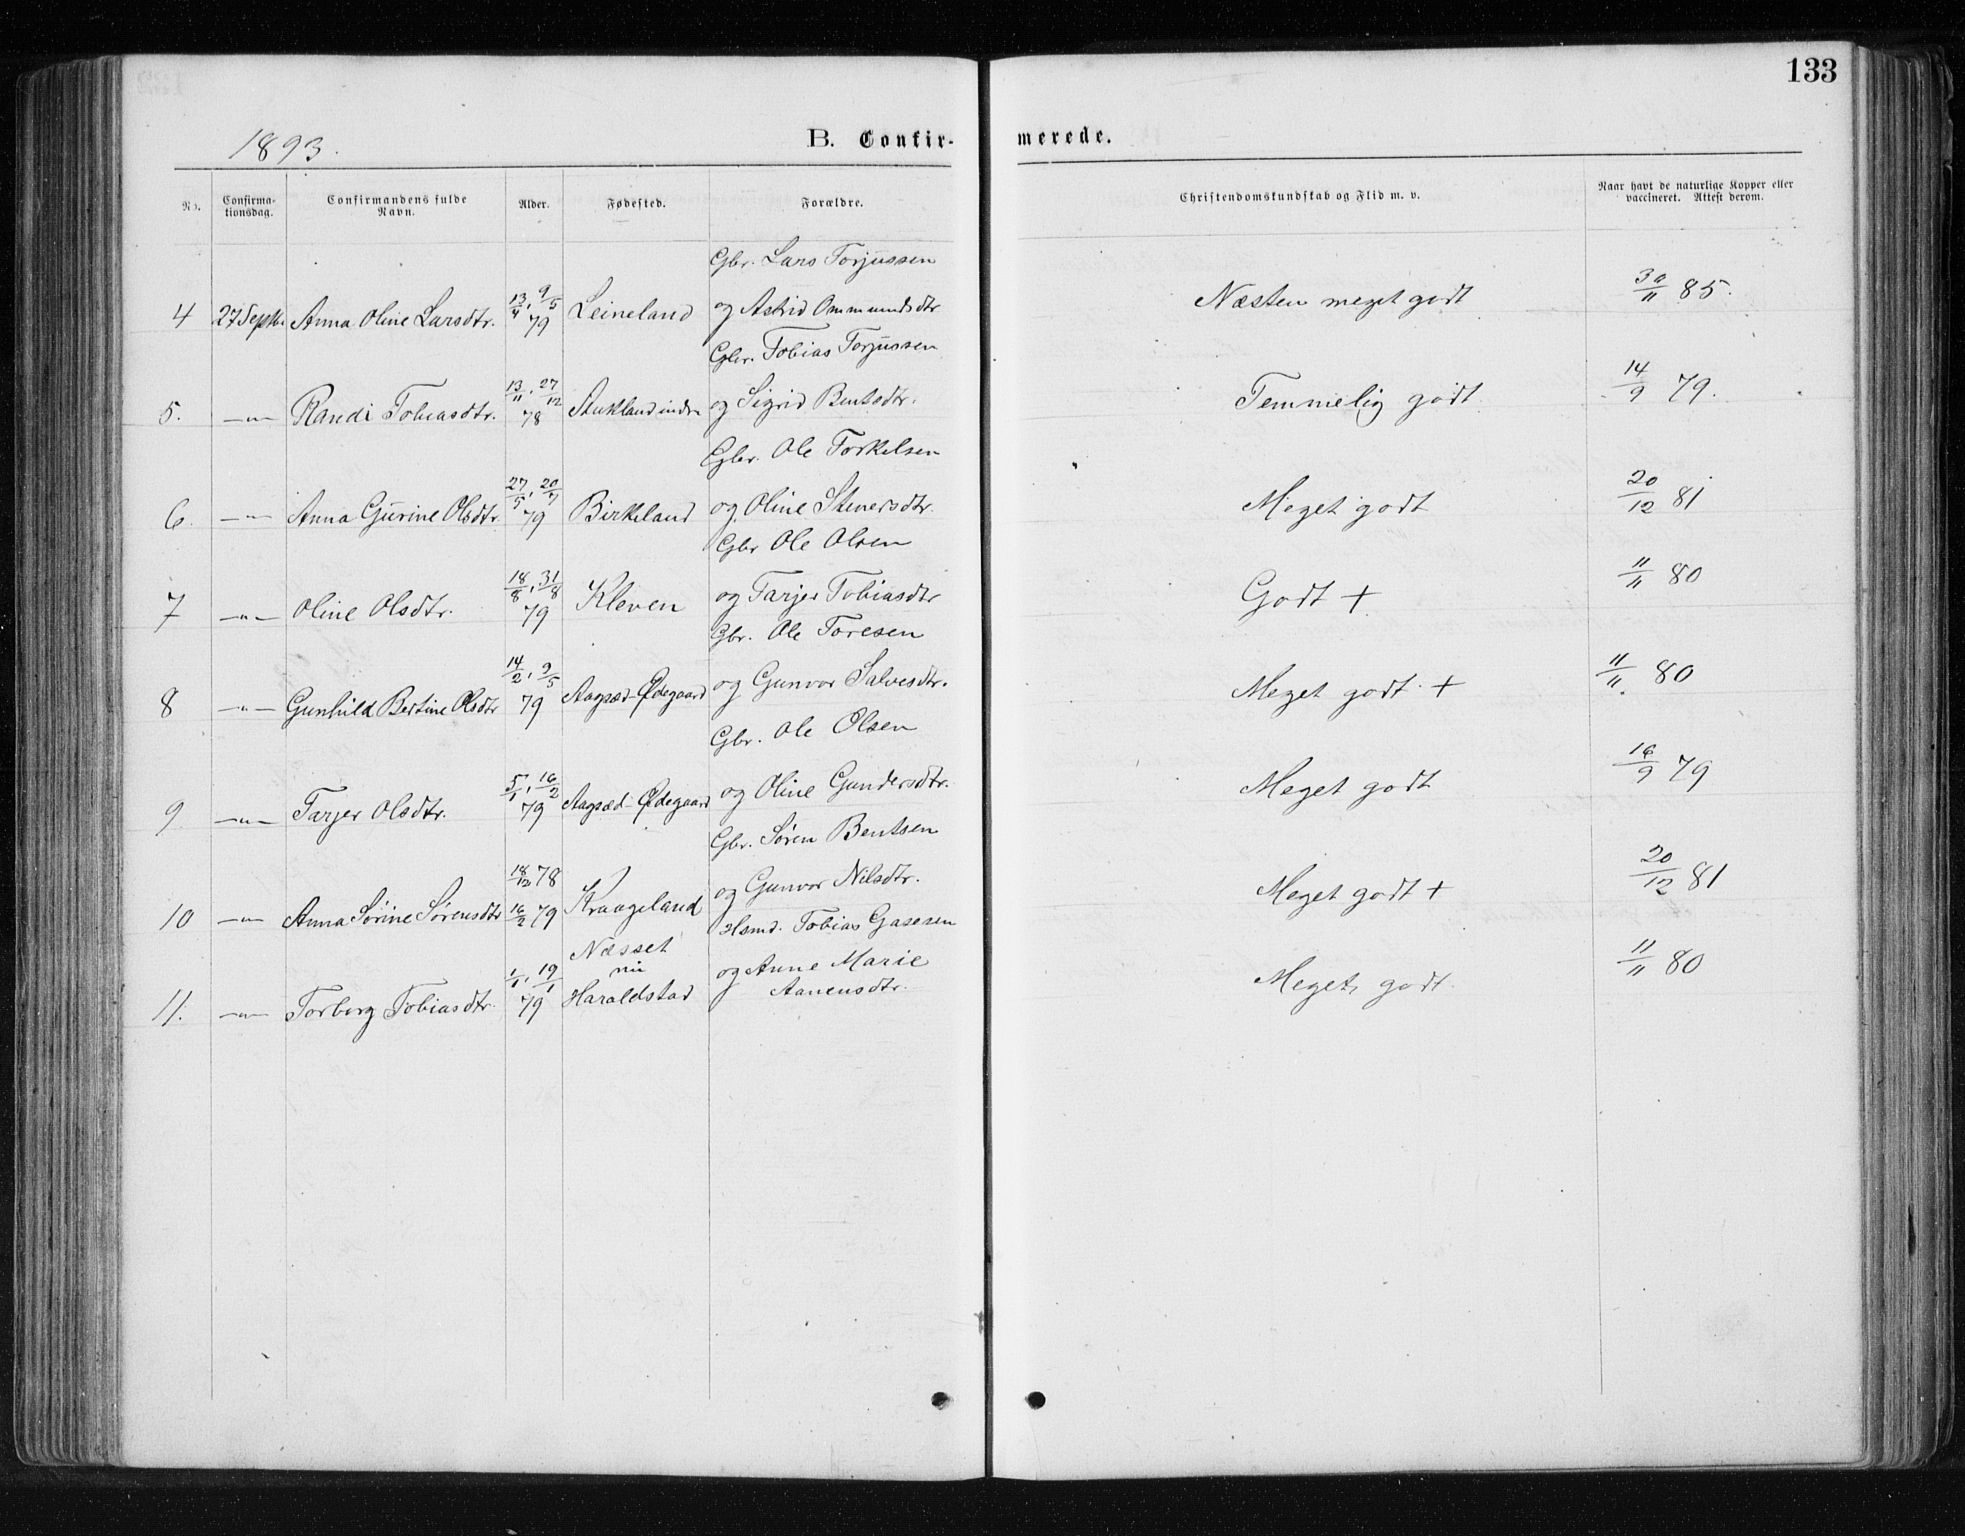 133
1893.
B. Confir-merede.
No. Confirma-tionsdag. Confirmandens fulde Navn. Alder. Fødested. Forældre. Christendomskundskab og Flid m. v. Naar havt de naturlige Kopper eller vaccineret. Attest derom.
Gbr. Lars Torjussen
4 27 Septbr Anna Oline Larsdtr. 13/4, 9/5 79 Leineland og Astrid Ommundsdtr Næsten meget godt 30/11 85.
Gbr. Tobias Torjussen
5. —"— Randi Tobiasdtr. 13/11, 27/12 78 Stukland indre og Sigrid Bentsdtr. Temmelig godt 14/9 79.
Gbr. Ole Torkelsen
6. —"— Anna Gurine Olsdtr 27/5, 20/7 79 Birkeland og Oline Stenersdtr. Meget godt 20/12 81
Gbr Ole Olsen
7 —"— Oline Olsdtr. 18/8, 31/8 79 Kleven og Tarjer Tobiasdtr Godt + 11/11 80
Gbr. Ole Toresen
8 —"— Gunhild Bertine Olsdtr 14/2, 2/5 79 Aagsæd-Ødegaard og Gunvor Salvesdtr. Meget godt + 11/11 80
Gbr. Ole Olsen
9 —"— Tarjer Olsdtr. 5/1, 16/2 79 Aagsæd-Ødegaard og Oline Gundersdtr. Meget godt 16/9 79
Gbr. Søren Bentsen
10 —"— Anna Sørine Sørensdtr 18/12 78 16/2 79 Kraageland og Gunvor Nilsdtr. Meget godt + 20/12 81
Hsmd. Tobias Gasesen
11. —"— Torborg Tobiasdtr. 1/1, 19/1 79 Næsset nu Haraldstad og Anne Marie Aanensdtr. Meget godt. 11/11 80